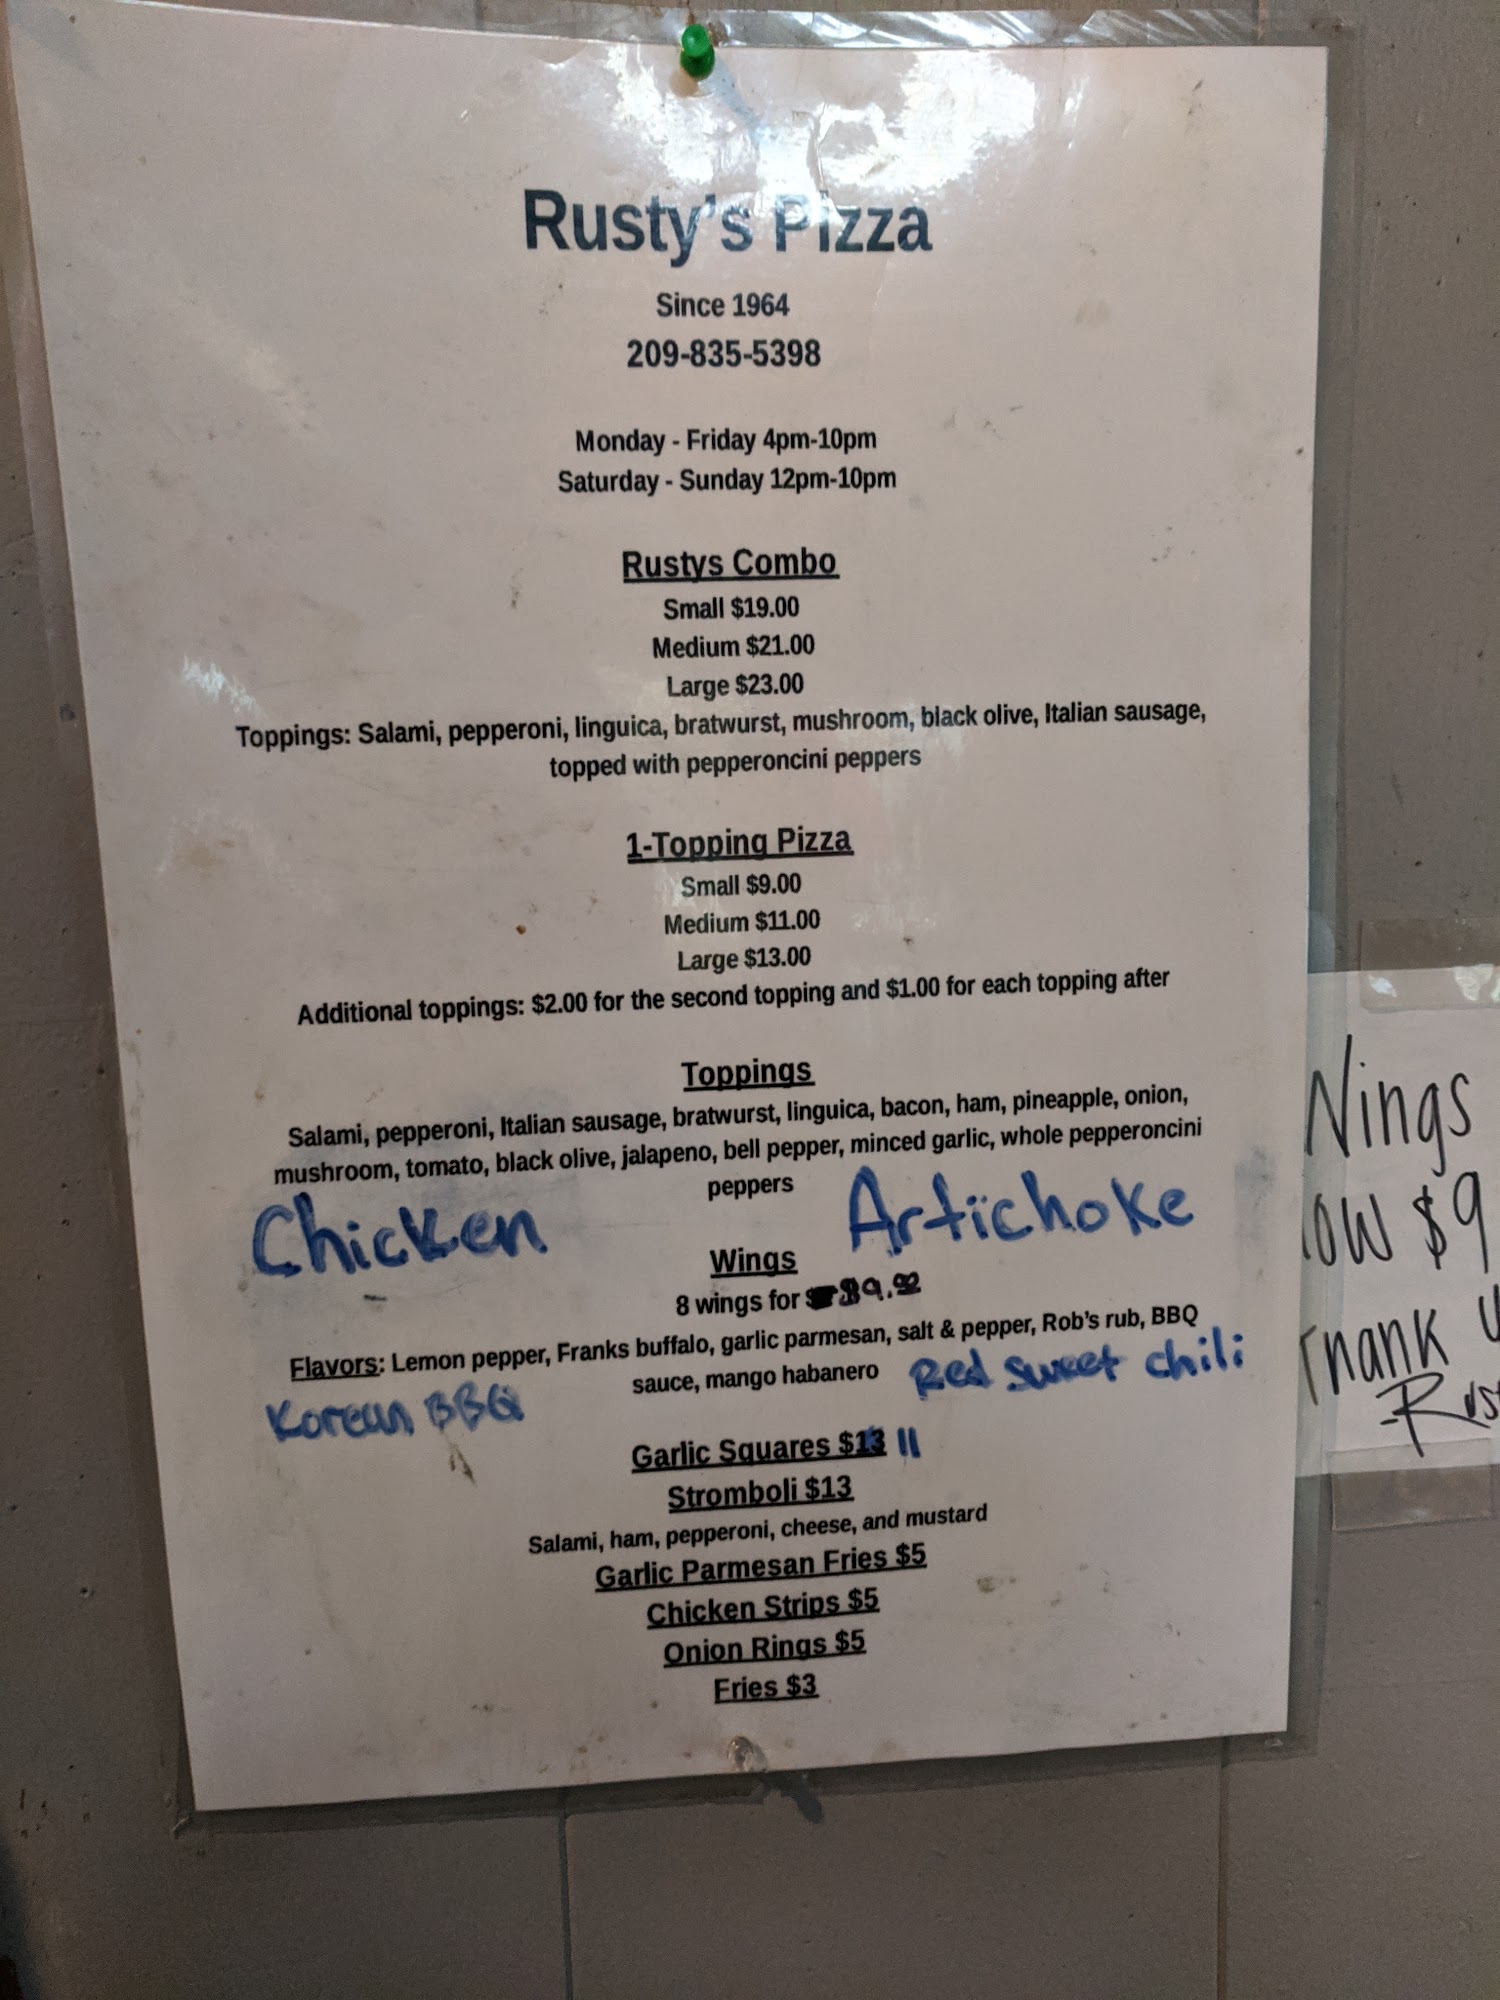 Rusty's Pizza
Since 1964
209-835-5398
Monday - Friday 4pm-10pm
Saturday - Sunday 12pm-10pm
Rustys Combo
Small $19.00
Medium $21.00
Large $23.00
Toppings: Salami, pepperoni, linguica, bratwurst, mushroom, black olive, Italian sausage,
topped with pepperoncini peppers
1-Topping Pizza
Small $9.00
Medium $11.00
Large $13.00
Additional toppings: $2.00 for the second topping and $1.00 for each topping after
Toppings
Salami, pepperoni, Italian sausage, bratwurst, linguica, bacon, ham, pineapple, onion,
mushroom, tomato, black olive, jalapeno, bell pepper, minced garlic, whole pepperoncini
peppers
Chicken Artichoke
Wings
8 wings for $9.00
Flavors: Lemon pepper, Franks buffalo, garlic parmesan, salt & pepper, Rob's rub, BBQ
sauce, mango habanero Red sweet chili
Korean BBQ
Garlic Squares $13 11
Stromboli $13
Salami, ham, pepperoni, cheese, and mustard
Garlic Parmesan Fries $5
Chicken Strips $5
Onion Rings $5
Fries $3
Wings
now $9
Thank